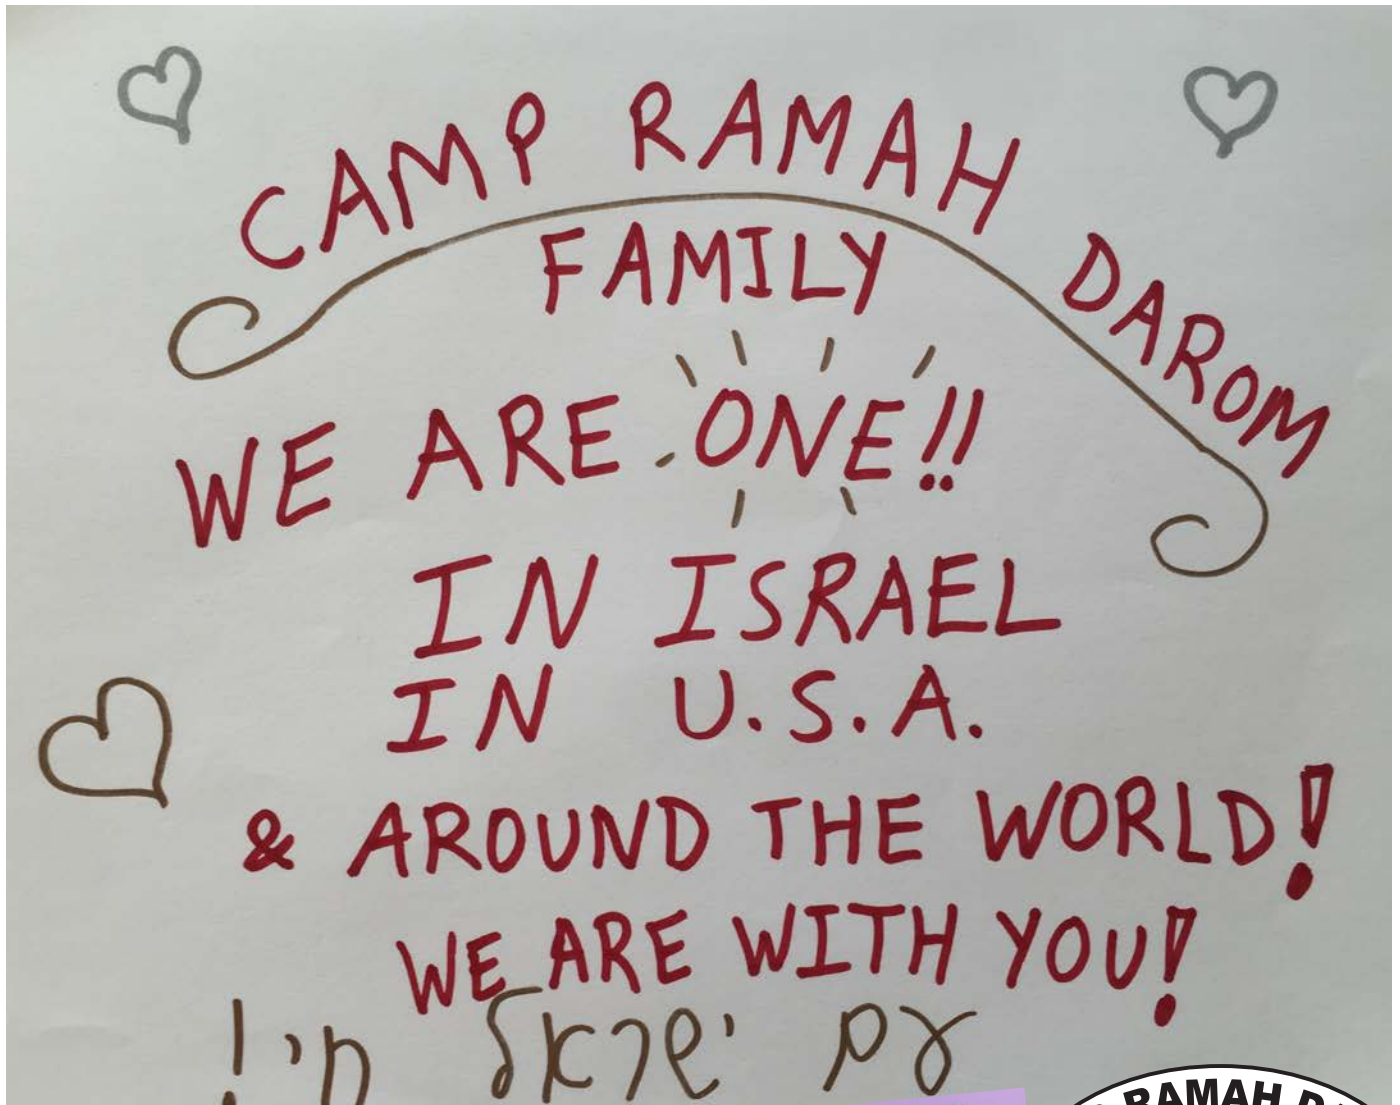 CAMP RAMAH DAROM
FAMILY
WE ARE ONE!!
IN ISRAEL
IN U.S.A.
& AROUND THE WORLD!
WE ARE WITH YOU!
עם ישראל חי!
RAMAH D